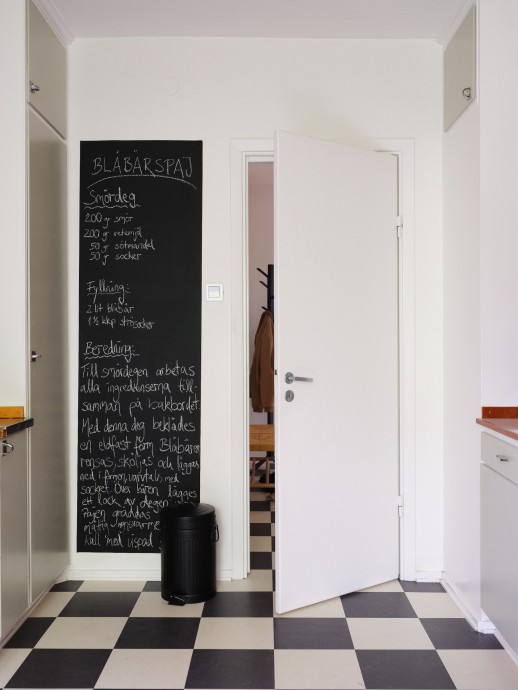 BLÅBÄRSPAJ
Smördeg
200 gr smör
200 gr vetemjöl
50 g sötmandel
50 g socker
Fyllning:
2 bt blåbär
1 ½ kkp strösocker
Beredning:
Till smördegen arbetas
alla ingredienserna till-
samman på bakbordet.
Med denna deg beklädes
en eldfast form Blåbären
rensas, sköljas och läggas
ned i formen, varvtals med
sockret. Över bären lägges
ett lock av degen
Pajen gräddas
kall med vispad